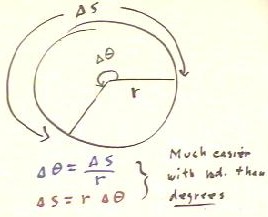 Δs
Δθ
r
Δθ = Δs / r
Δs = r Δθ
Much easier
with rad. than
degrees